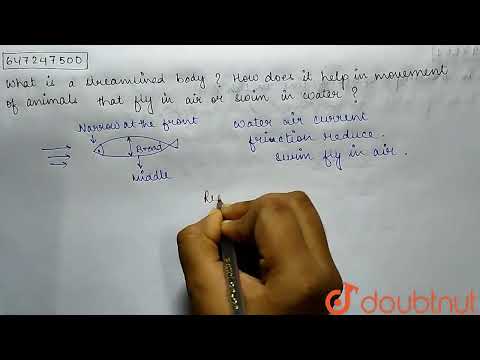 647247500
What is a streamlined body? How does it help in movement
of animals that fly in air or swim in water?
Narrow at the front
Broad
Middle
water air current
frinction reduce.
swim fly in air.
Re
doubtnut